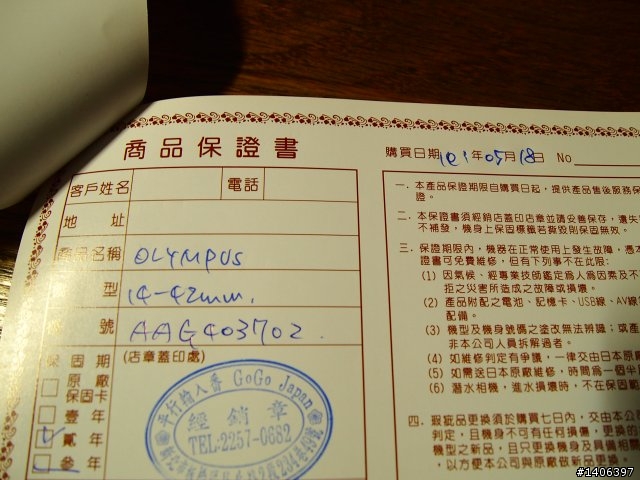 商品保證書
購買日期101年05月18日 No
客戶姓名
電話
地址
商品名稱 OLYMPUS
型 14-42mm.
號 AAG403702
保固期 (店章蓋印處)
原廠
保固卡
壹年
貳年
叁年
平行輸入香 GoGo Japan
經銷章
TEL-2257-0682
一. 本產品保證期限自購買日起，提供產品售後服務保
證書。
二. 本保證書須經銷店蓋印店章並請妥善保存，遺失
不補發，機身上保固標籤若撕毀則保固無效。
三. 保證期限內，機器在正常使用上發生故障，憑本
證書可免費維修，但有下列事不在此限:
(1) 因氣候、經專業技師鑑定為人為因素及不
拒之災害所造成之故障或損壞。
(2) 產品附配之電池、記憶卡、USB線、AV線
配備。
(3) 機型及機身號碼之塗改無法辨識；或產
非本公司人員拆解過者。
(4) 如維修判定有爭議，一律交由日本原廠
(5) 如需送日本原廠維修，時間為一個半月
(6) 潛水相機，進水損壞時，不在保固範
四. 瑕疵品更換須於購買七日內，交由本公
判定，且機身不可有任何損傷，更換的
機型之新品，且只更換機身及具備相關
，以方便本公司與原廠做新品更換。
#1406397